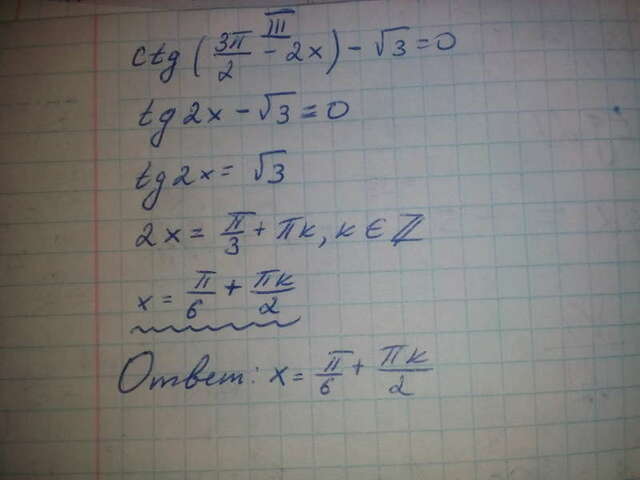 III
ctg (3π/2 - 2x) - √3 = 0
tg 2x - √3 = 0
tg 2x = √3
2x = π/3 + πk, k ∈ ℤ
x = π/6 + πk/2
Ответ: x = π/6 + πk/2